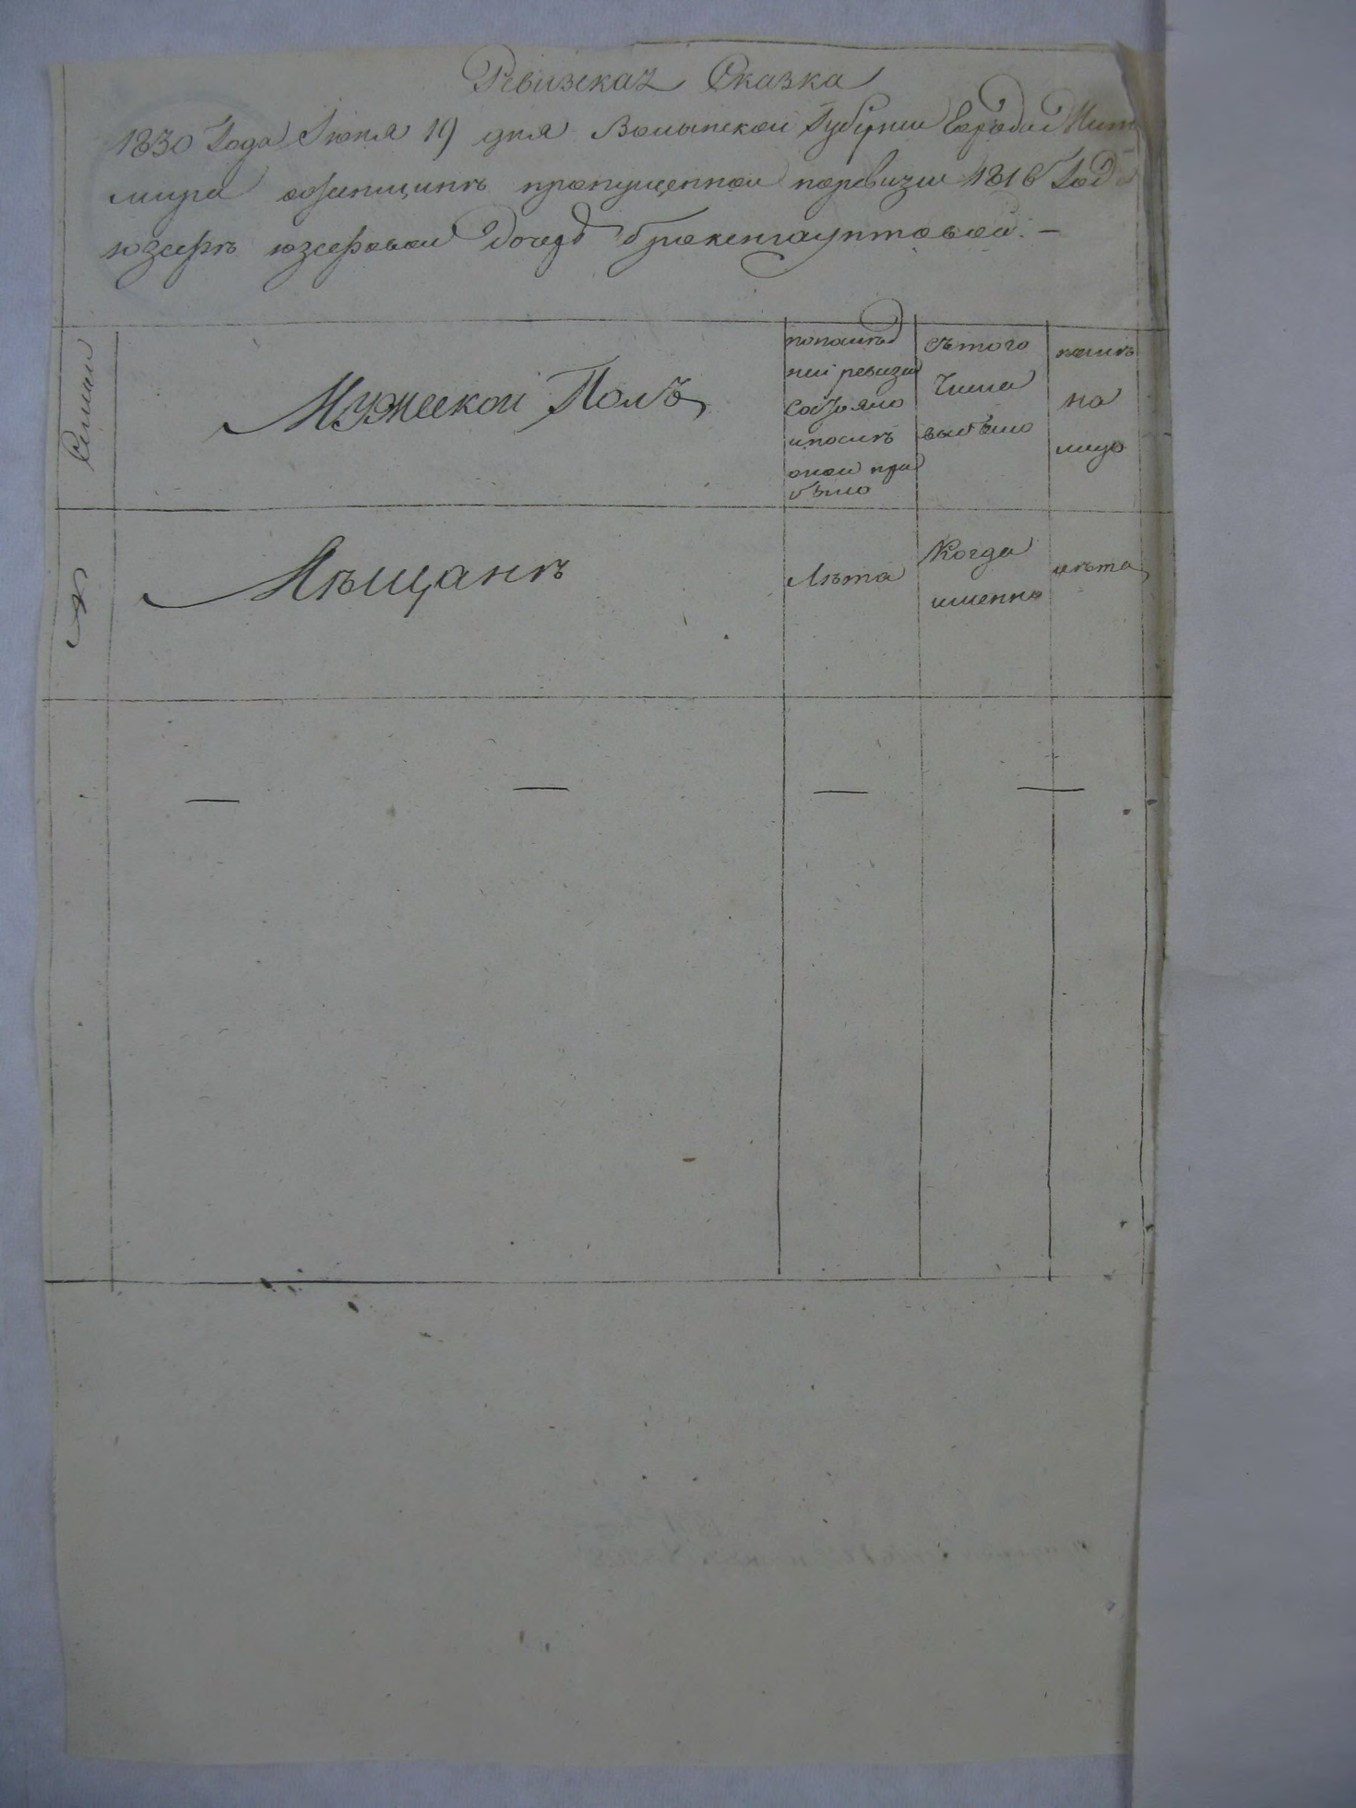 Ревизская Сказка
1830 Года Июня 19 дня Волынской Губернии Города Жито
мира о женщинѣ пропущенной поревизии 1816 Года
юзефовой дочери
Семьи
Мужеской Полъ
попослѣд
ней ревизии
состояло
ипослѣ
оной при
было
съ того
числа
выбыло
нынѣ
на
лицо
№
Мѣщанъ
Лѣта
Когда
именно
лѣта